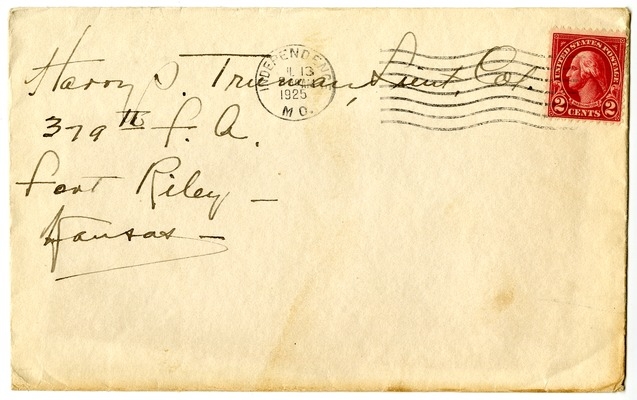 Harry S. Truman, Lieut. Col.
379th F. A.
Fort Riley —
Kansas —
INDEPENDENCE
13
1925
MO.
UNITED STATES POSTAGE
2 CENTS 2